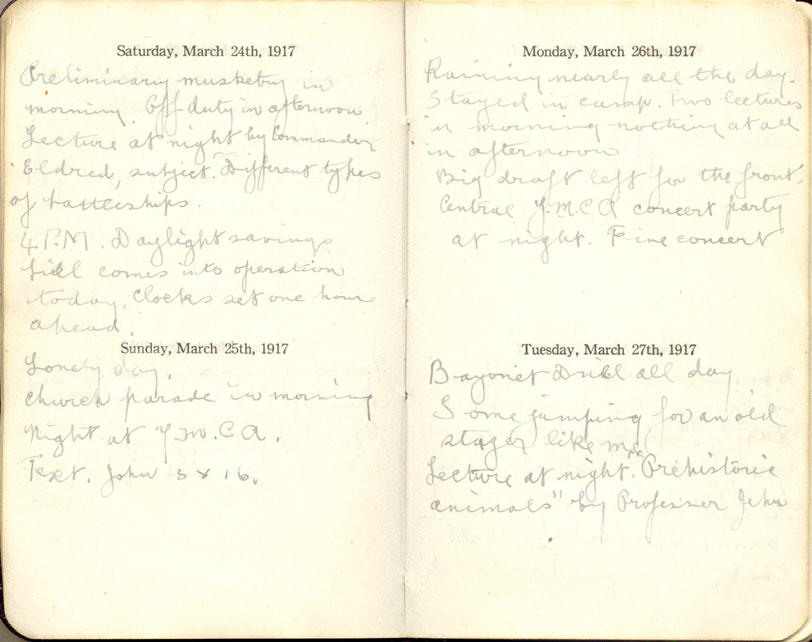 Saturday, March 24th, 1917
Preliminary musketry in
morning. Off duty in afternoon
Lecture at night by Commander
Eldred, subject. Different types
of battleships.
4 P.M. Daylight savings
bill comes into operation
today. Clocks set one hour
ahead.
Sunday, March 25th, 1917
Lonely day.
Church parade in morning
Night at Y.M.C.A.
Text. John 3 x 16.
Monday, March 26th, 1917
Raining nearly all the day.
Stayed in camp. Two lectures
in morning nothing at all
in afternoon
Big draft left for the front.
Central Y.M.C.A concert party
at night. Fine concert
Tuesday, March 27th, 1917
Bayonet Drill all day
Some jumping for an old
stager like me
Lecture at night. "Prehistoric
animals" by Professor John